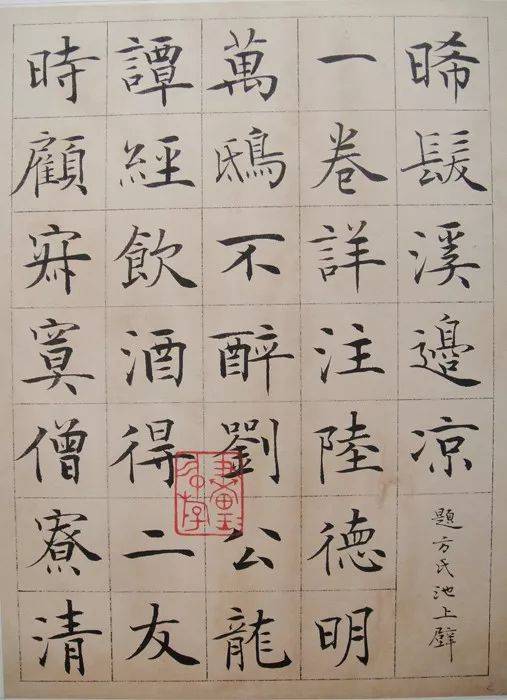 晞髮溪邊凉
題方氏池上壁
一卷詳注陸德明
萬鴟不醉劉公龍
譚經飲酒得二友
時顧寂寞僧寮清